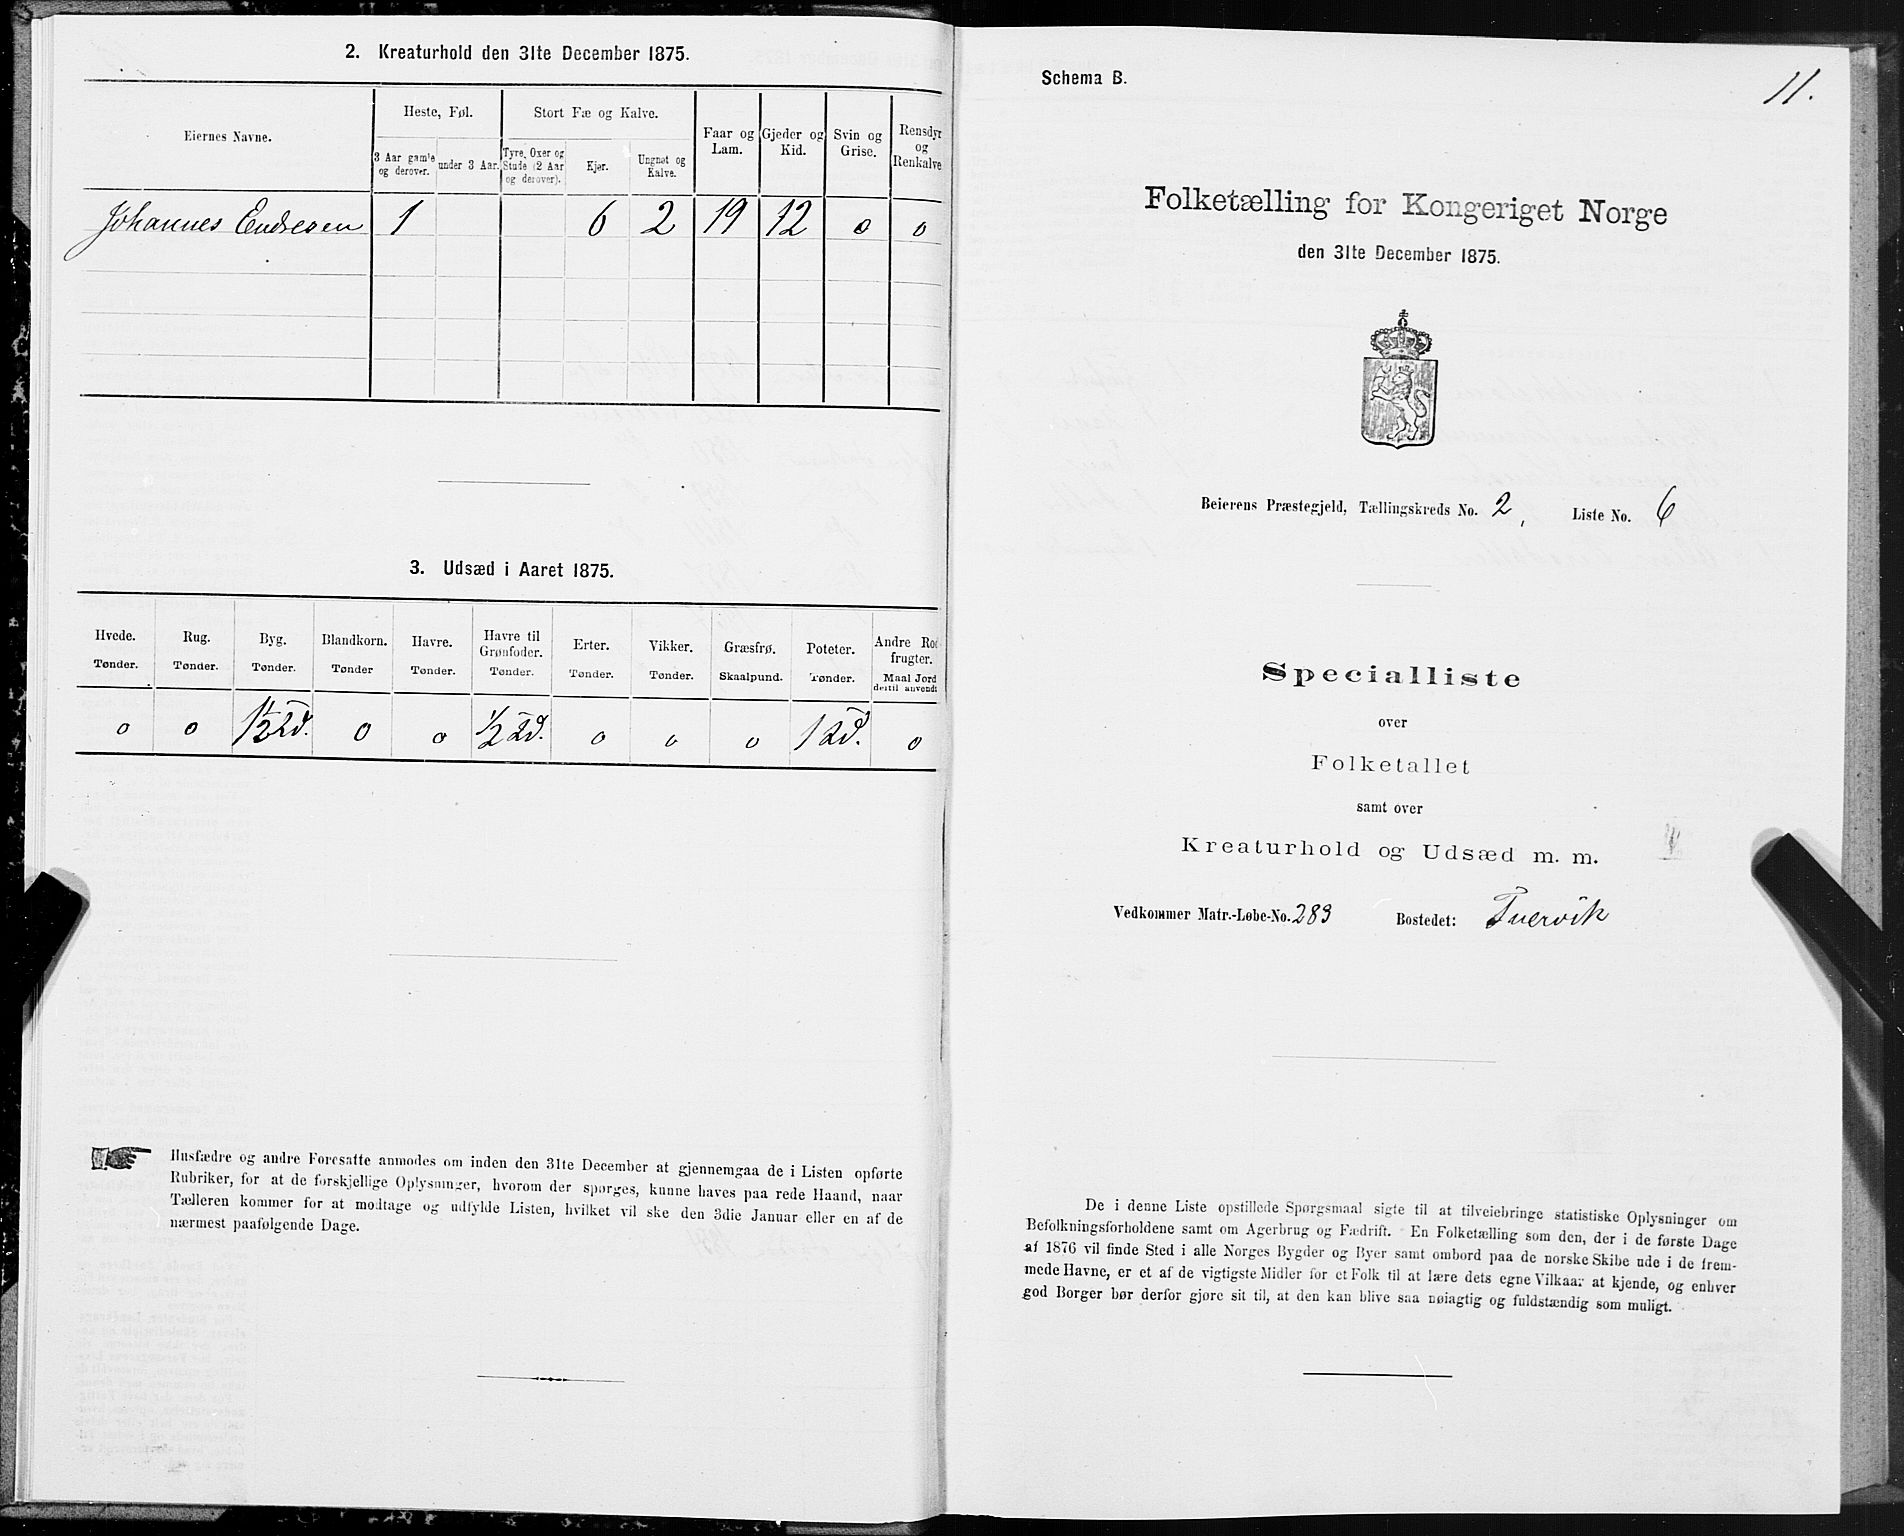 2. Kreaturhold den 31te December 1875.
Eiernes Navne.
Heste, Føl.
Stort Fæ og Kalve.
Faar og Lam.
Gjeder og Kid.
Svin og Grise.
Rensdyr og Renkalve
3 Aar gamle og derover.
under 3 Aar.
Tyre, Oxer og Stude (2 Aar og derover).
Kjør.
Ungnøt og Kalve.
Johannes Endresen 1 6 2 19 12 0 0
3. Udsæd i Aaret 1875.
Hvede. Rug. Byg. Blandkorn. Havre. Havre til Grønfoder. Erter. Vikker. Græsfrø. Poteter. Andre Rodfrugter.
Tønder. Tønder. Tønder. Tønder Tønder. Tønder. Tønder. Tønder. Skaalpund. Tønder. Maal Jord dertil anvendt
0 0 1½ Td. 0 0 ½ Td. 0 0 0 1 Td. 0
Husfædre og andre Foresatte anmodes om inden den 31te December at gjennemgaa de i Listen opførte
Rubriker, for at de forskjellige Oplysninger, hvorom der spørges, kunne haves paa rede Haand, naar
Tælleren kommer for at modtage og udfylde Listen, hvilket vil ske den 3die Januar eller en af de
nærmest paafølgende Dage.
Schema B.
11.
Folketælling for Kongeriget Norge
den 31te December 1875.
Beierens Præstegjeld, Tællingskreds No. 2, Liste No. 6
Specialliste
over
Folketallet
samt over
Kreaturhold og Udsæd m. m.
Vedkommer Matr.-Løbe-No. 283 Bostedet: Tvervik
De i denne Liste opstillede Spørgsmaal sigte til at tilveiebringe statistiske Oplysninger om
Befolkningsforholdene samt om Agerbrug og Fædrift. En Folketælling som den, der i de første Dage
af 1876 vil finde Sted i alle Norges Bygder og Byer samt ombord paa de norske Skibe ude i de frem-
mede Havne, er et af de vigtigste Midler for et Folk til at lære dets egne Vilkaar at kjende, og enhver
god Borger bør derfor gjøre sit til, at den kan blive saa nøiagtig og fuldstændig som muligt.